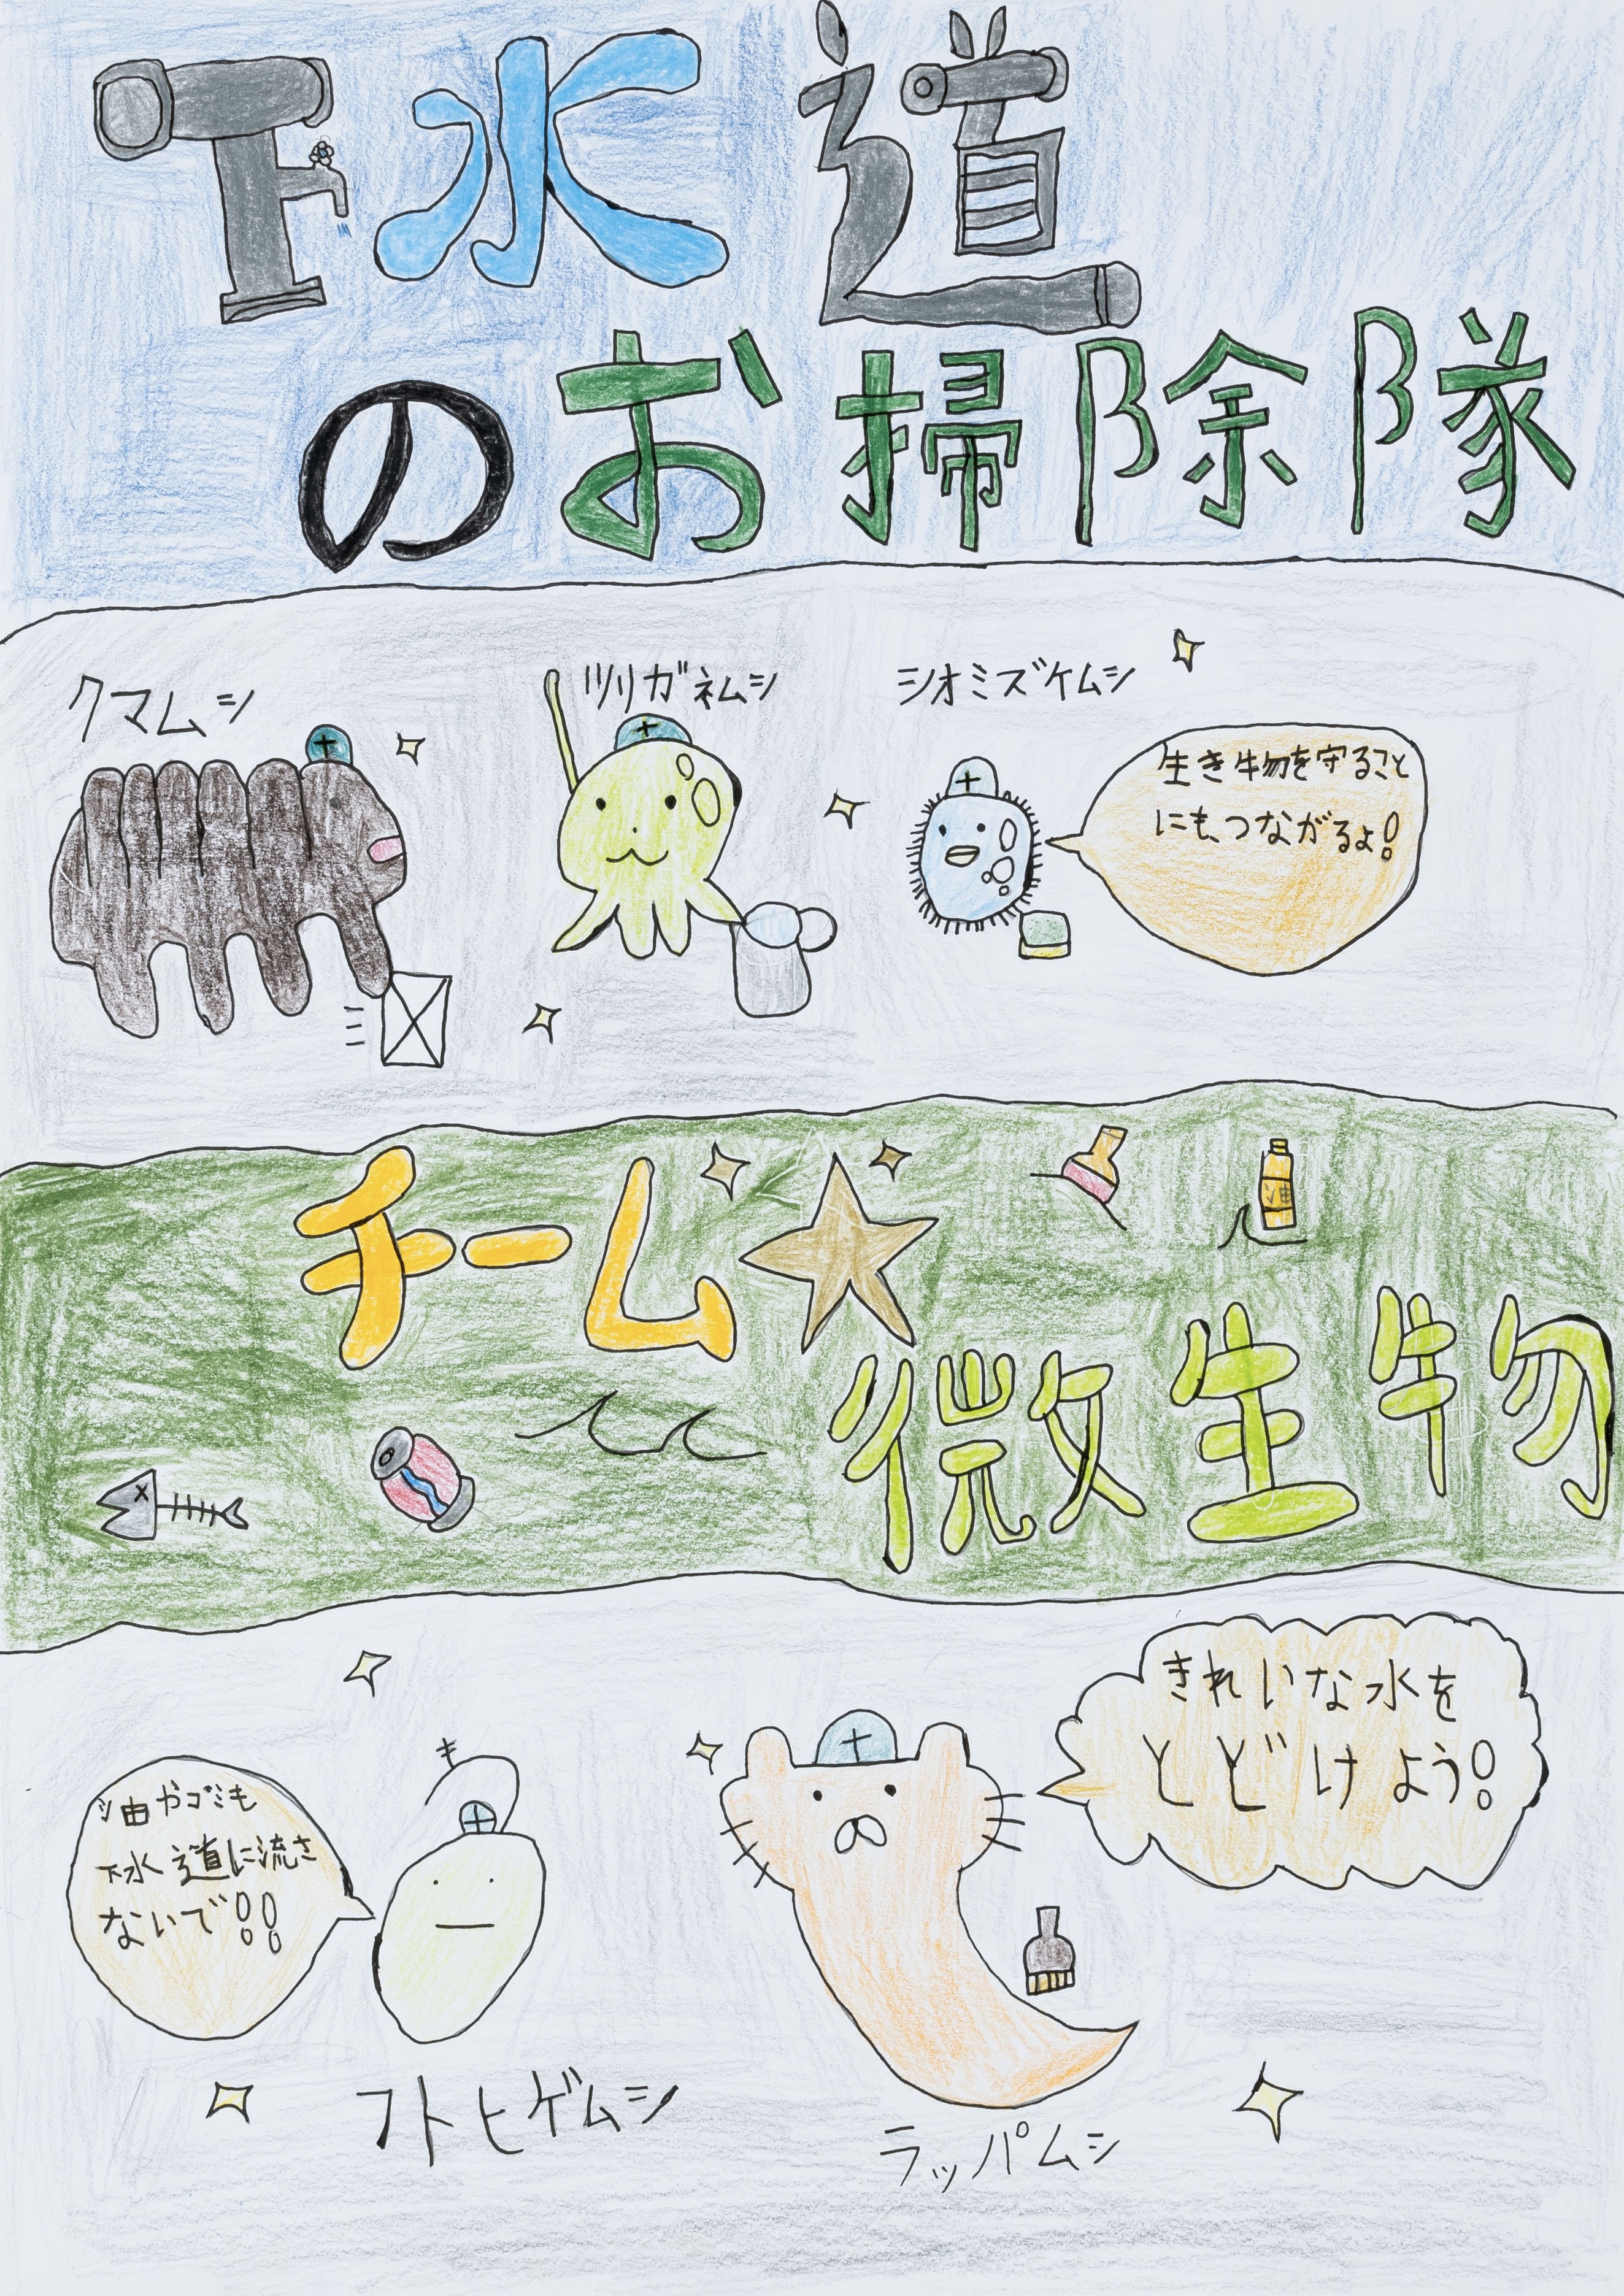 下水道
のお掃除隊
クマムシ
ツリガネムシ
シオミズケムシ
生き物を守ること
にも、つながるよ!
チーム☆
油
微生物
きれいな水を
とどけよう!
油やゴミも
下水道に流さ
ないで!!
フトヒゲムシ
ラッパムシ